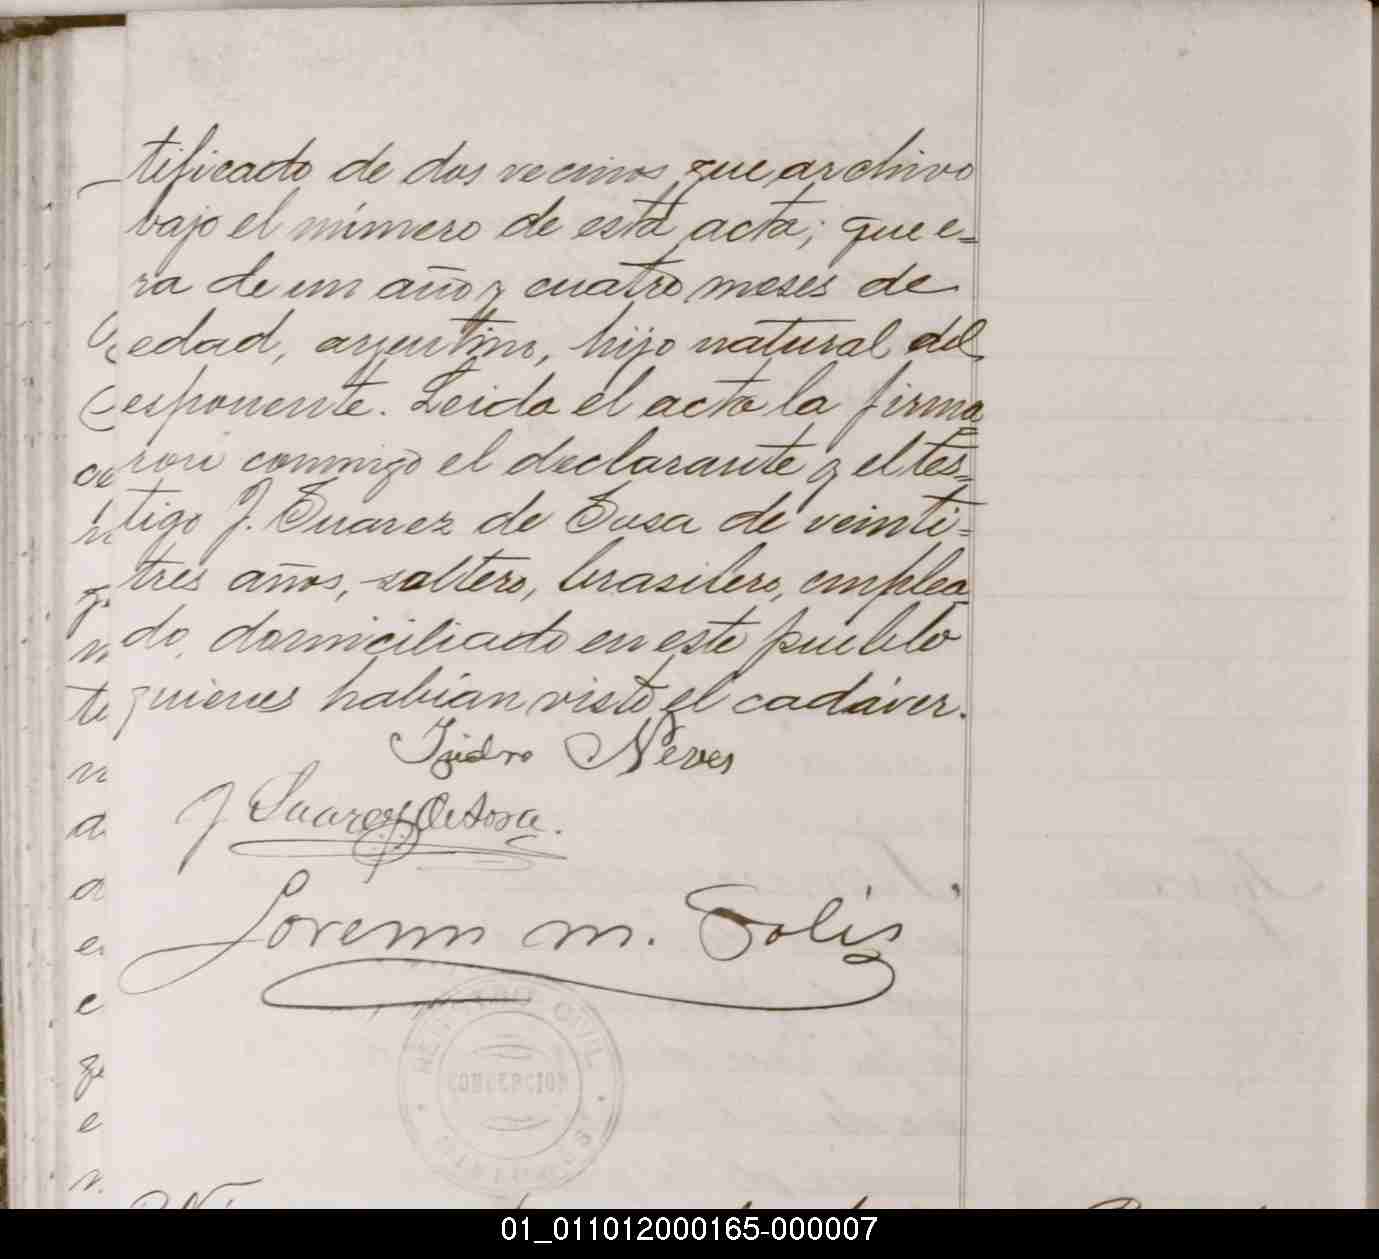 tificado de dos vecinos que archivo
bajo el número de esta acta; que e=
ra de un año y cuatro meses de
edad, argentino, hijo natural del
esponente. Leida el acta la firma=
ron conmigo el declarante y el tes=
tigo J. Suarez de Sosa de veinti=
tres años, soltero, brasilero, emplea=
do, domiciliado en este pueblo
quienes habían visto el cadáver.
Isidro Neves
J Suarez De Sosa.
Lorenzo M. Solis
REGISTRO CIVIL
CONCEPCION
01_011012000165-000007